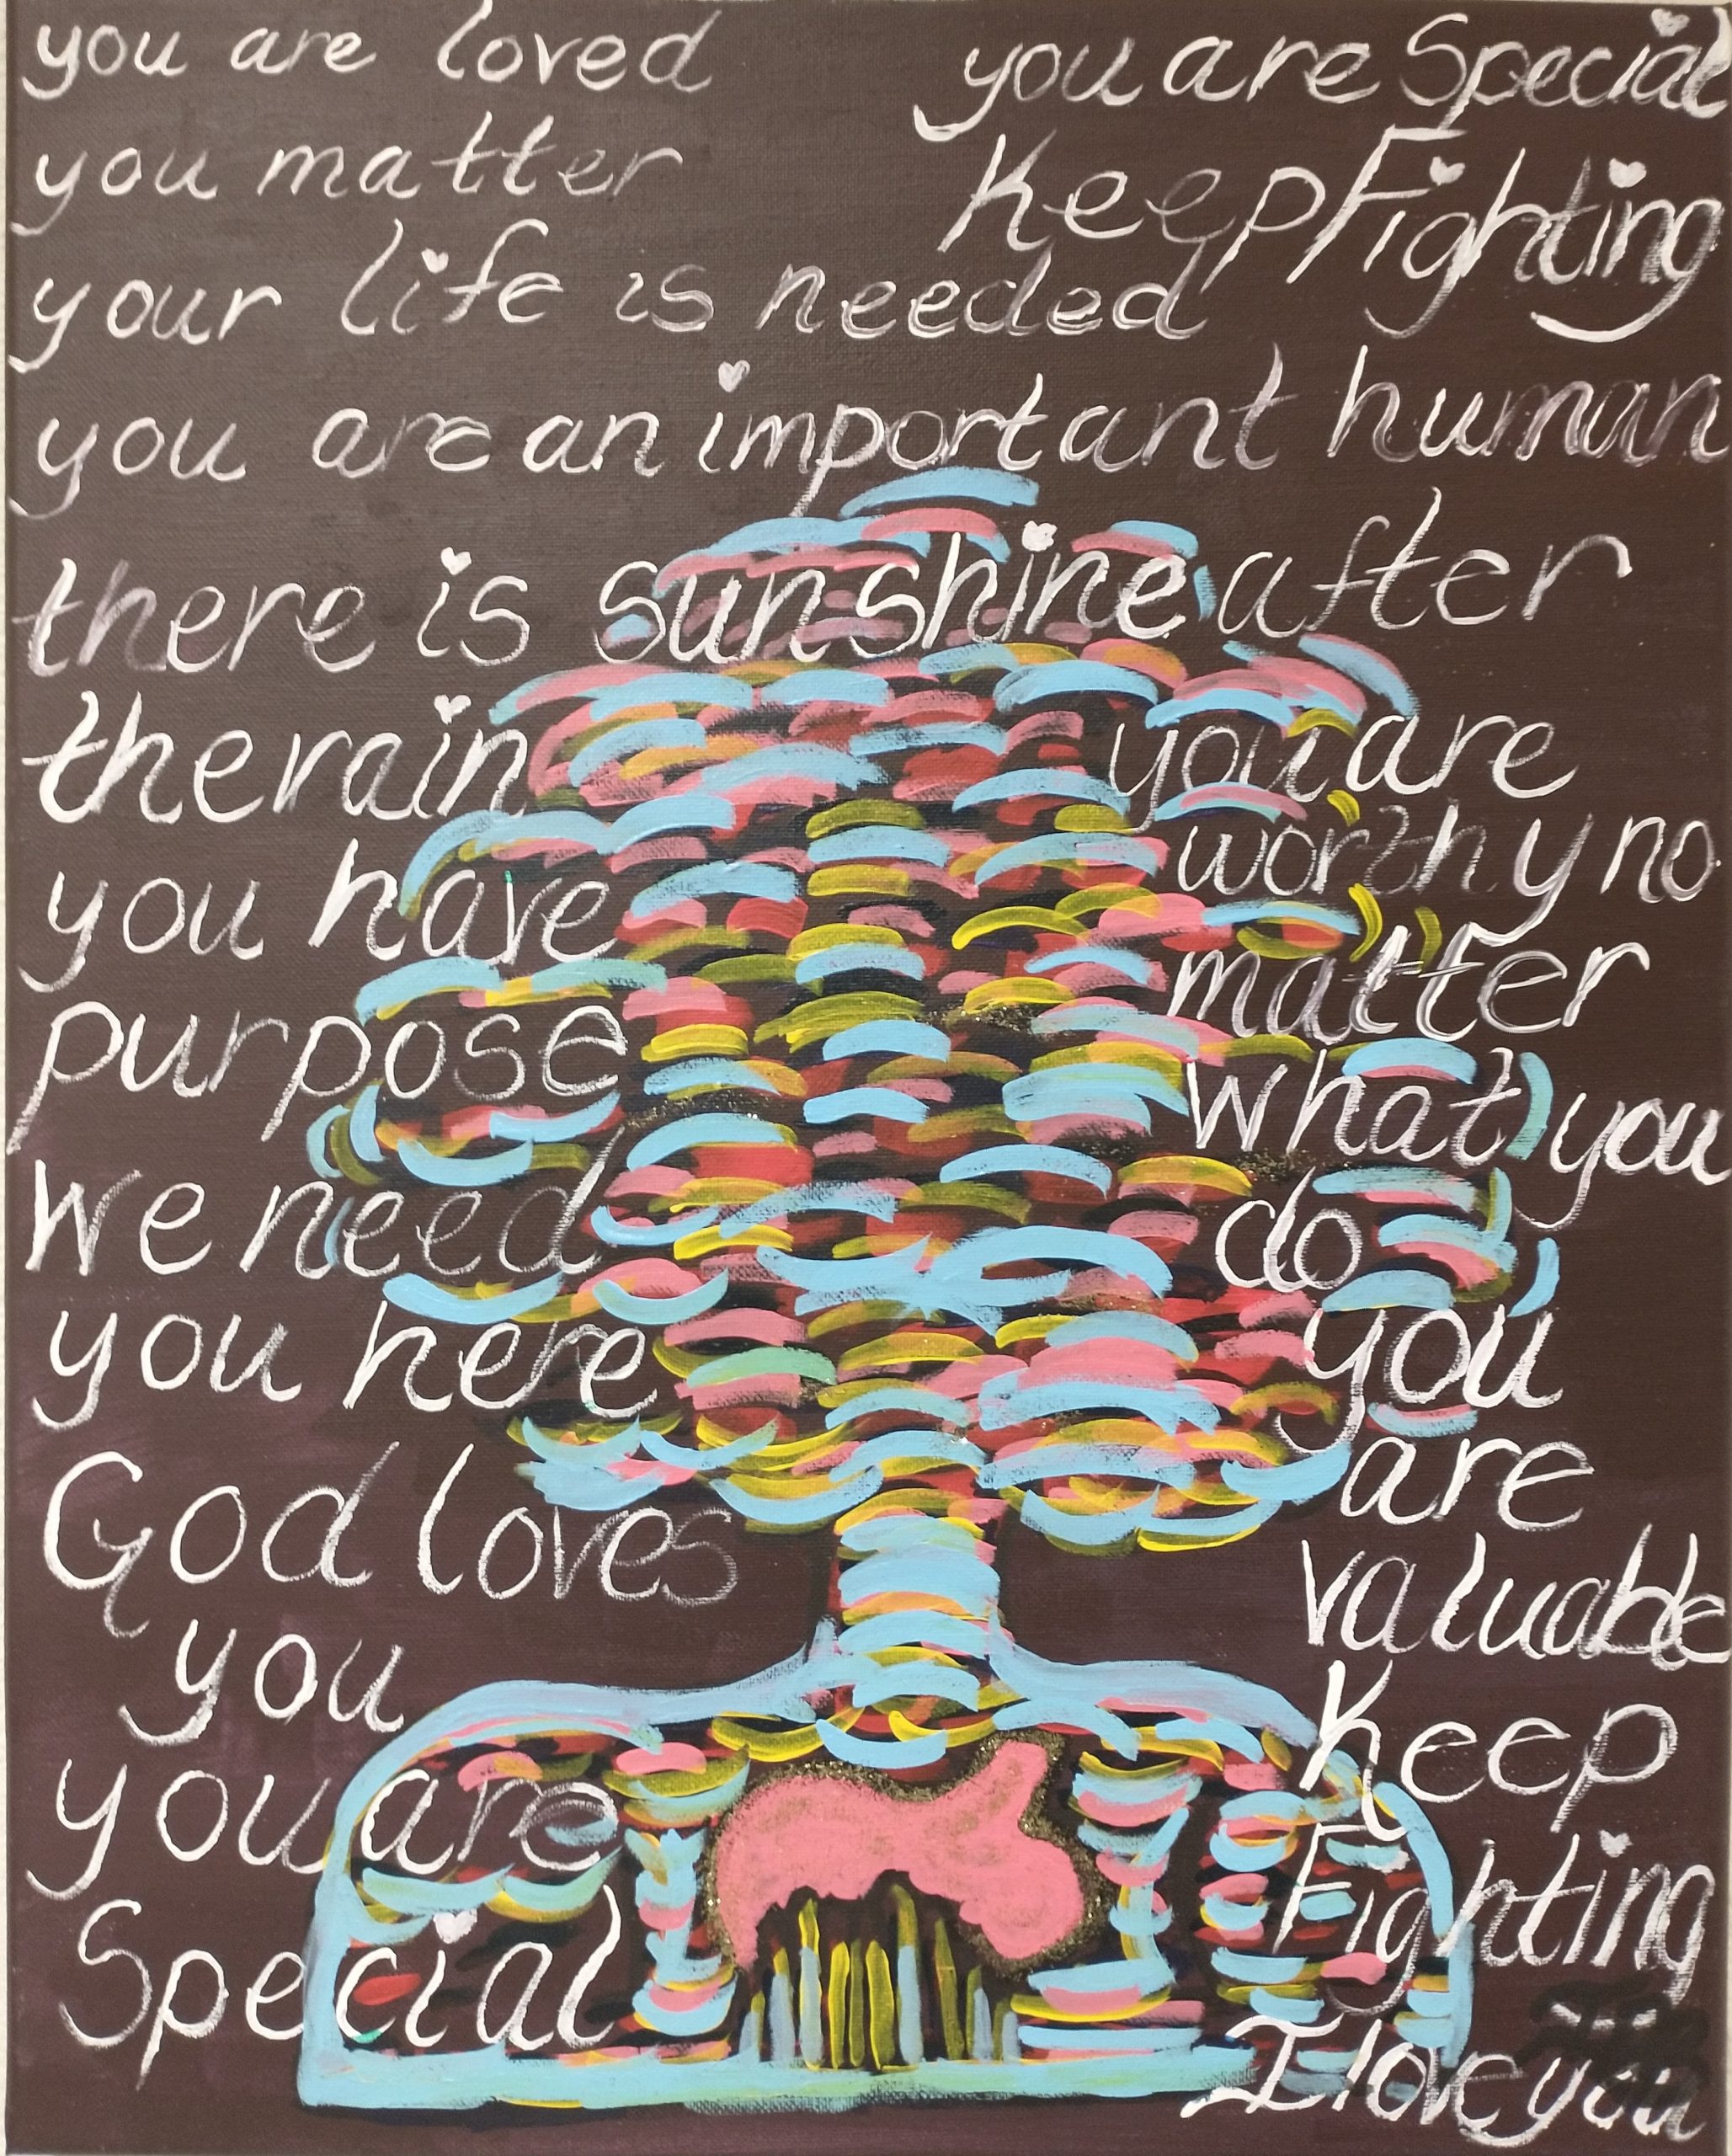 you are loved
you are Special
you matter
Keep Fighting
your life is needed
you are an important human
there is sunshine after
the rain
you have
purpose
we need
you here
God loves
you
you are
Special
you are
worthy no
matter
what you
do
you
are
valuable
Keep
Fighting
I love you